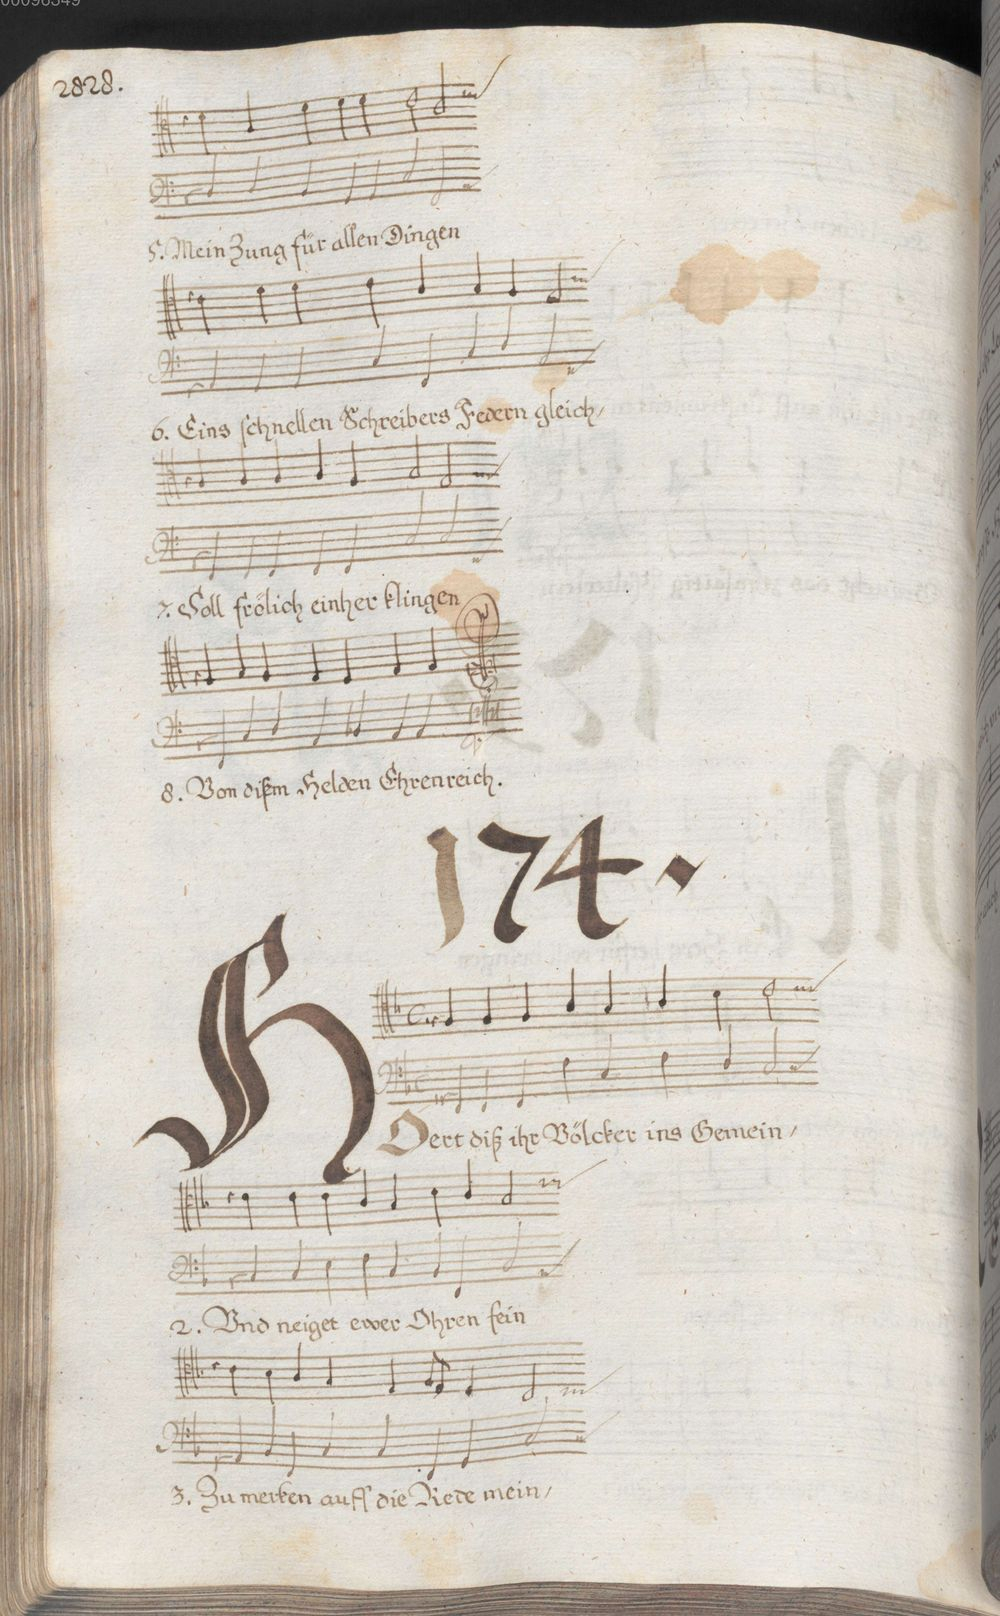 00098349
2828.
5. Mein Zung für allen Dingen
6. Eins schnellen Schreibers Federn gleich/
7. Soll frölich einher klingen
8. Von dißm Helden Ehrenreich.
174.
HOert diß ihr Völcker ins Gemein/
2. Vnd neiget ewer Ohren fein
3. Zu merken auff die Rede mein/